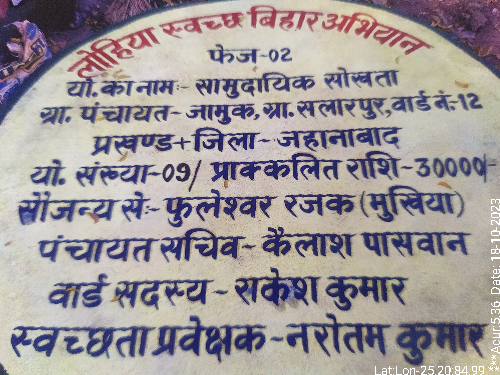 लोहिया स्वच्छ बिहार अभियान
फेज-02
यो. का नामः- सामुदायिक सोख्ता
ग्रा. पंचायत- जामुक, ग्रा. सलारपुर, वार्ड नं:-12
प्रखण्ड+जिला- जहानाबाद
यो. संख्या-09/ प्राक्कलित राशि-30000/-
सौजन्य सेः- फुलेश्वर रजक (मुखिया)
पंचायत सचिव- कैलाश पासवान
वार्ड सदस्य - सकेश कुमार
स्वच्छता प्रवेक्षक-नरोतम कुमार
Lat Lon-25 20.84.99
***Acur:5.36, Date: 18-10-2023